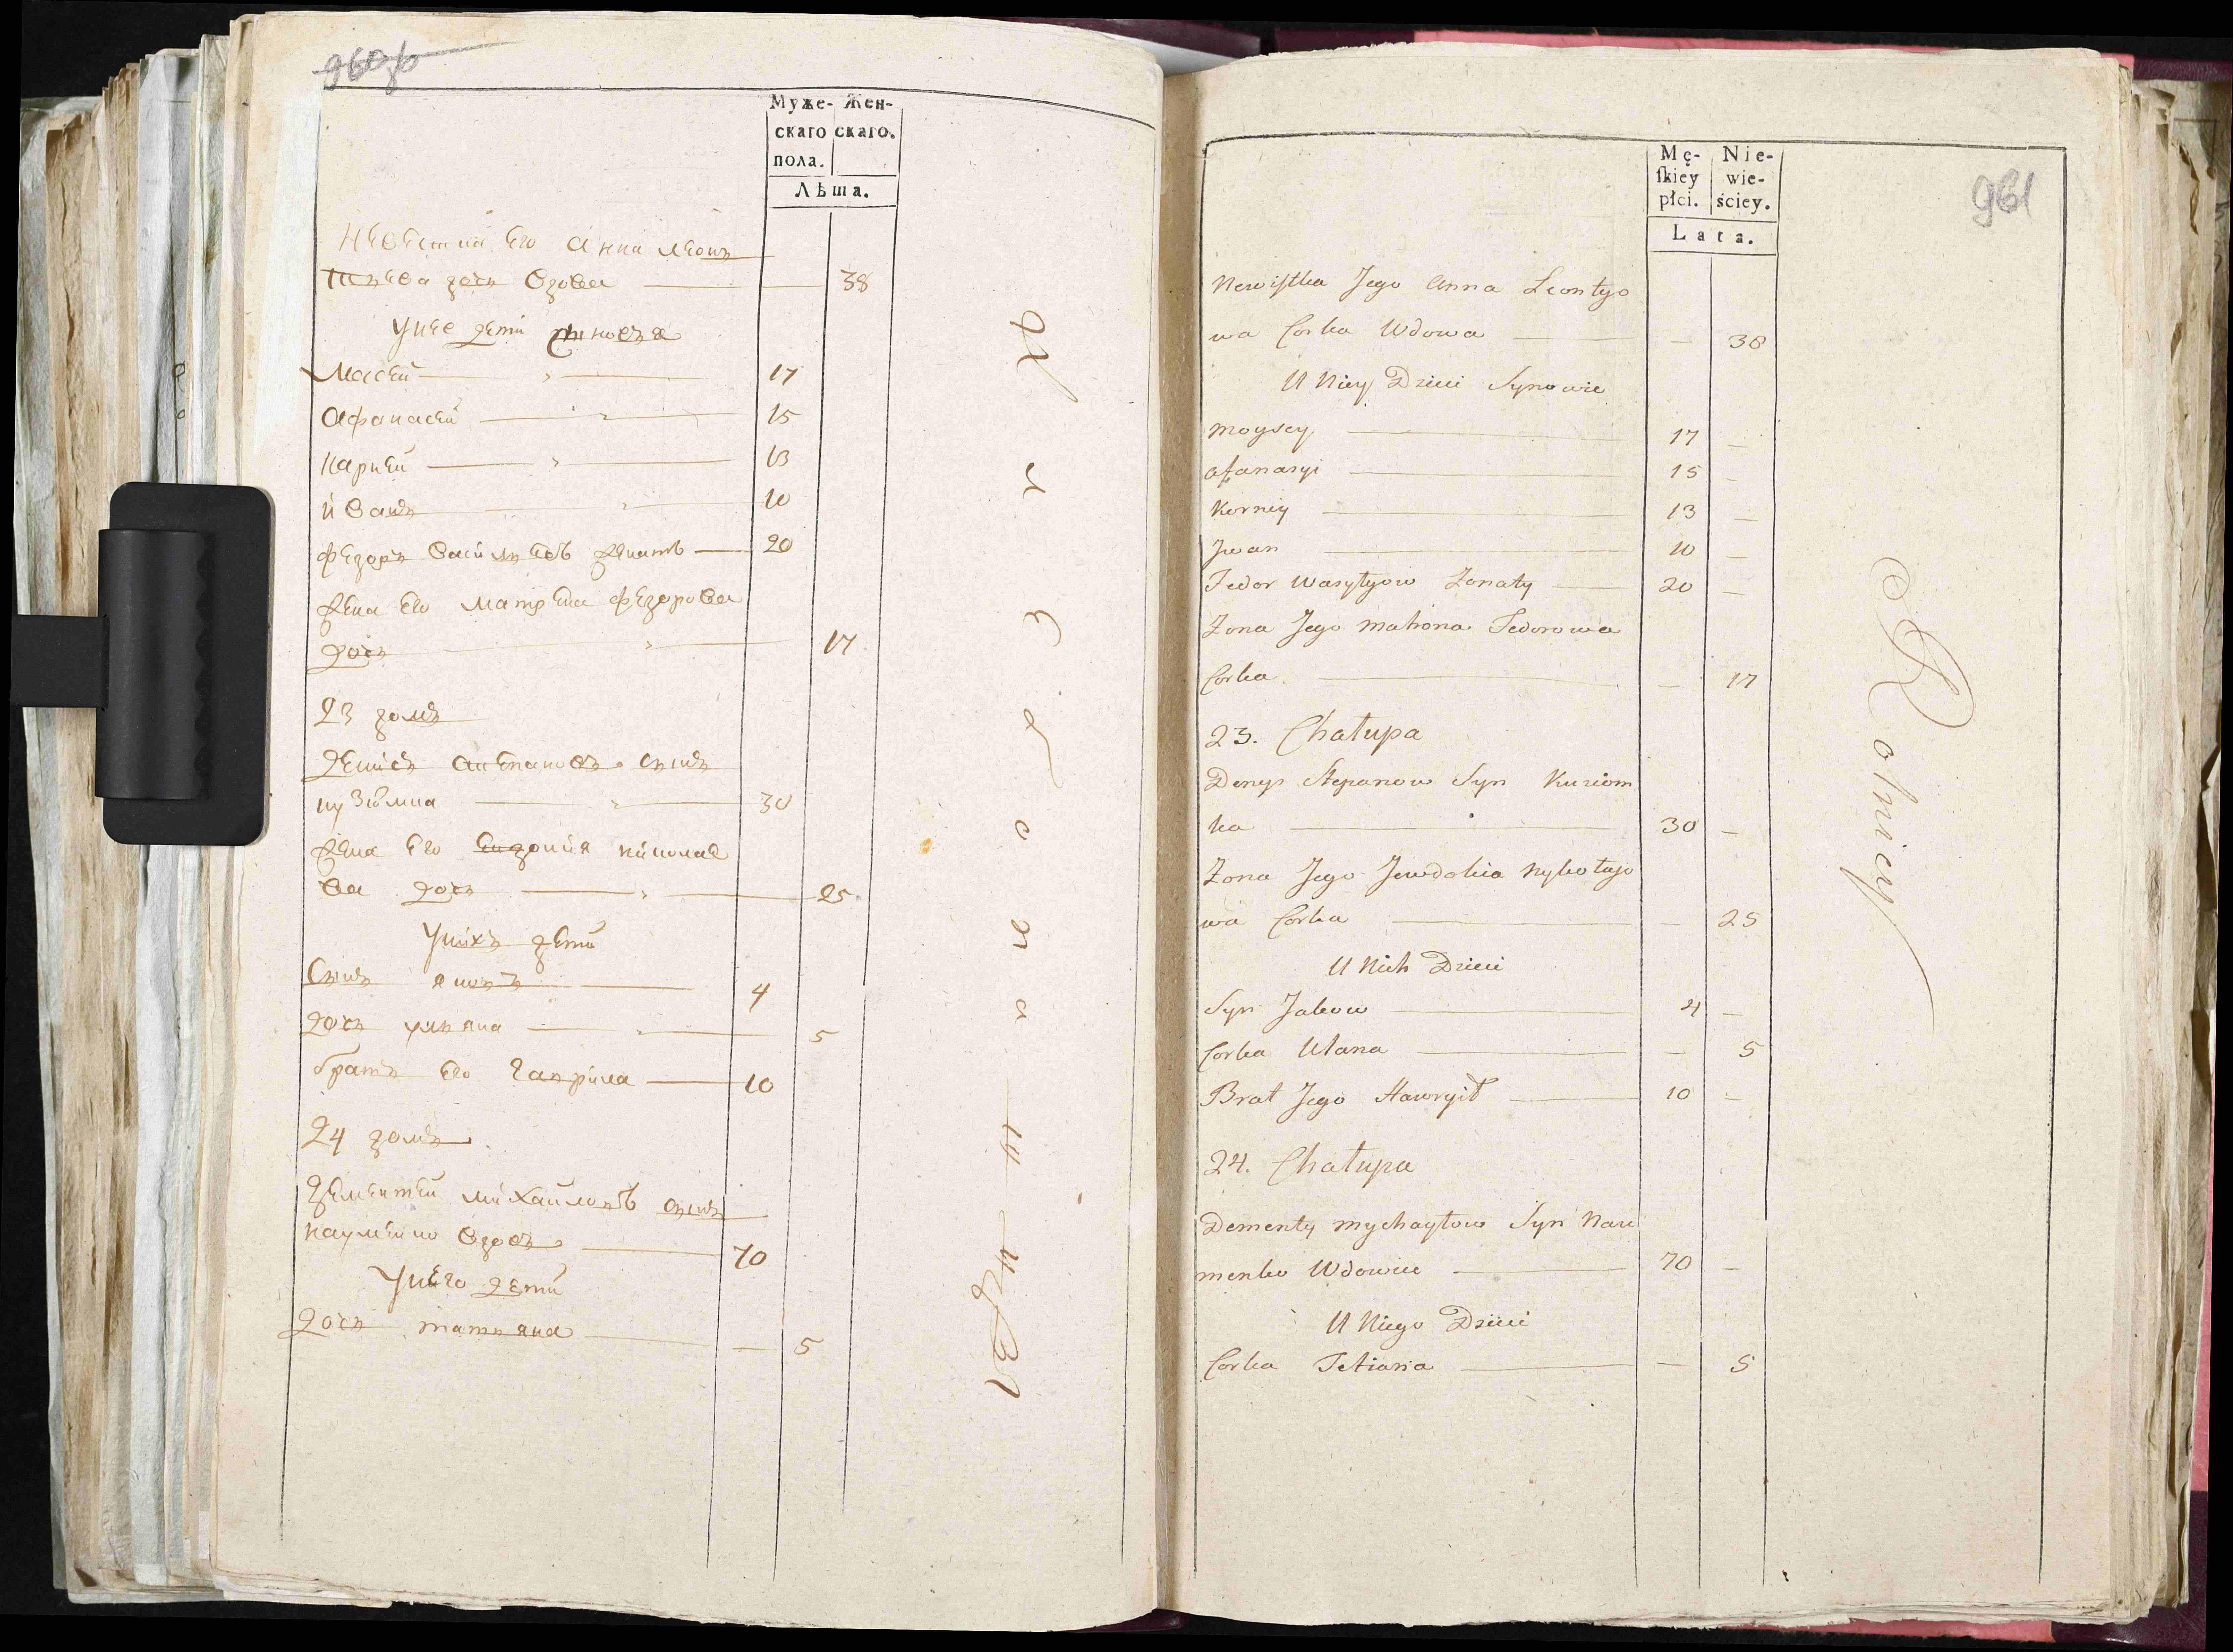 960об
Муже- Жен-
скаго скаго.
пола.
Лѣта.
Невестка Его Анна Леонъ
тьева дочь вдова 38
У нее дети сыновья
Мосей 17
Афанасей 15
Карней 13
Иванъ 10
Федоръ Васильевъ женатъ 20
Жена Его Матрена Федорова
дочь 17
23 домъ
Денисъ Степановъ сынъ
кузюмка 30
Жена Его Евдокия Николае
ва дочь 25
У нихъ дети
Сынъ яковъ 4
дочь ульяна 5
братъ Его Гаврила 10
24 домъ
Дементей михайловъ сынъ
науменко вдовъ 70
У него дети
дочь татьяна — 5
961
Mę- Nie-
ſkiey wie-
płci. ściey.
Lata.
Newiſtka Jego Anna Leontyo
wa Corka Wdowa — 38
U Niey Dzieci Synowie
Moysey 17 —
Afanasyi 15 —
Korniy 13 —
Jwan 10 —
Fedor Wasylyow Zonaty 20 —
Zona Jego Matrona Fedorowa
Corka — 17
23. Chałupa
Denys Stepanow Syn Kuziom
ka 30 —
Zona Jego Jewdokia Nykołajo
wa Corka — 25
U Nich Dzieci
Syn Jakow 4 —
Corka Ulana — 5
Brat Jego Hawryił 10 —
24. Chałupa
Dementy Mychayłow Syn Nau
menko Wdowiec 70 —
U Niego Dzieci
Corka Tetiana — 5
Rolnicy